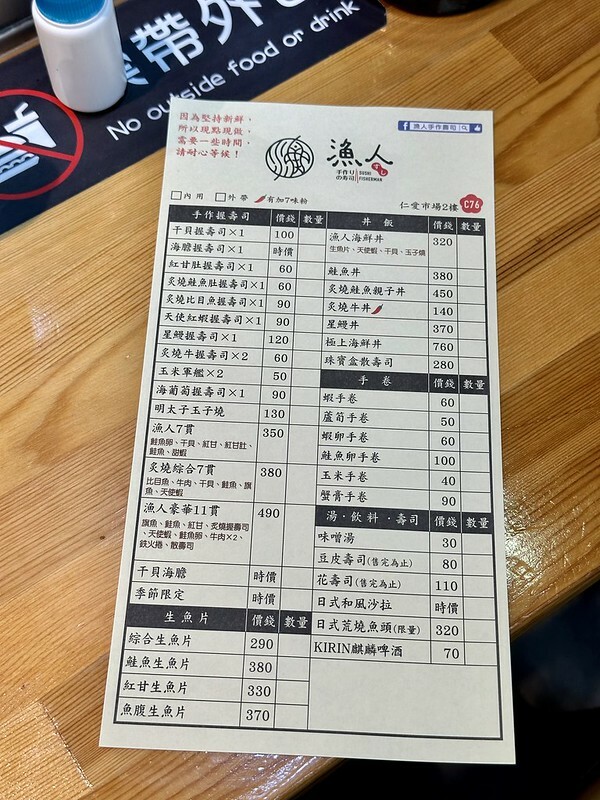 禁帶外
No outside food or drink
因為堅持新鮮，
所以現點現做，
需要一些時間，
請耐心等候！
漁人手作壽司
漁人
すし
手作り
の寿司
SUSHI
FISHERMAN
內用 外帶 有加7味粉
仁愛市場2樓 C76
手作握壽司 價錢 數量
干貝握壽司×1 100
海膽握壽司×1 時價
紅甘肚握壽司×1 60
炙燒鮭魚肚握壽司×1 60
炙燒比目魚握壽司×1 90
天使紅蝦握壽司×1 90
星鰻握壽司×1 120
炙燒牛握壽司×2 60
玉米軍艦×2 50
海葡萄握壽司×1 90
明太子玉子燒 130
漁人7貫 350
鮭魚卵、干貝、紅甘、紅甘肚、
鮭魚、甜蝦
炙燒綜合7貫 380
比目魚、牛肉、干貝、鮭魚、旗
魚、天使蝦
漁人豪華11貫 490
旗魚、鮭魚、紅甘、炙燒握壽司
、天使蝦、鮭魚卵、牛肉×2、
鉄火捲、散壽司
干貝海膽 時價
季節限定 時價
生魚片 價錢 數量
綜合生魚片 290
鮭魚生魚片 380
紅甘生魚片 330
魚腹生魚片 370
丼飯 價錢 數量
漁人海鮮丼 320
生魚片、天使蝦、干貝、玉子燒
鮭魚丼 380
炙燒鮭魚親子丼 450
炙燒牛丼 140
星鰻丼 370
極上海鮮丼 760
珠寶盒散壽司 280
手卷 價錢 數量
蝦手卷 60
蘆筍手卷 50
蝦卵手卷 60
鮭魚卵手卷 100
玉米手卷 40
蟹膏手卷 90
湯·飲料·壽司 價錢 數量
味噌湯 30
豆皮壽司(售完為止) 80
花壽司(售完為止) 110
日式和風沙拉 時價
日式荒燒魚頭(限量) 320
KIRIN麒麟啤酒 70